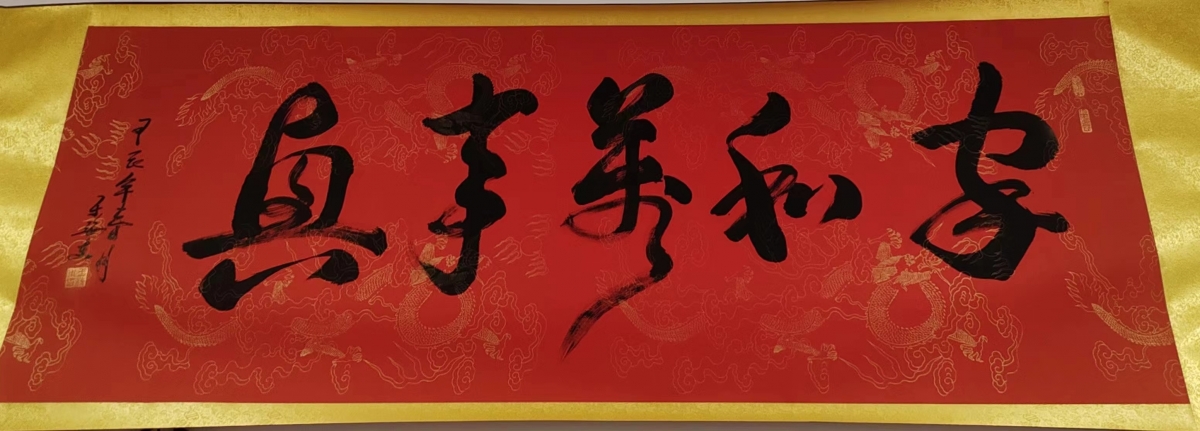 家和萬事興
甲辰年春月